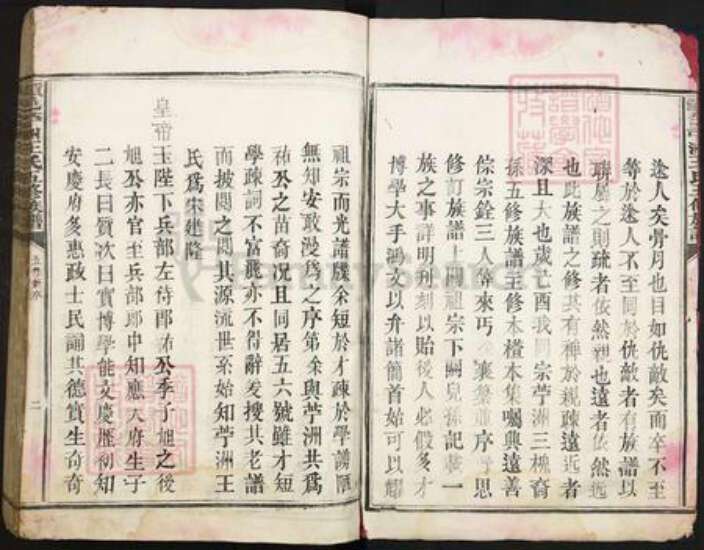 途人矣骨月也目如仇敵矣而卒不至
等於途人不至同於仇敵者有族譜以
聯屬之則疏者依然親也遠者依然近
也此族譜之修其有裨於親疎遠近者
深且大也歲丁酉我同宗苧洲三槐裔
孫五修族譜呈修木楷木集囑興遠善
倧宗銓三人等來丐 襄 序 思
修訂族譜上關祖宗下關兒孫記載一
族之事詳明刋刻以貽後人必假多才
博學大手鴻文以弁諸簡首始可以耀
祖宗而光譜牒余短於才疎於學謭陋
無知安敢漫爲之序第余與苧洲共爲
祐公之苗裔况且同居五六號雖才短
學疎詞不富麗亦不得辭爰搜其老譜
而披閱之悶其源流世系始知苧洲王
氏爲宋建隆
皇帝玉陛下兵部左待郎祐公季子旭之後
旭公亦官至兵部郎中知應天府生子
二長曰質次曰實博學能文慶歷初知
安慶府多惠政士民誦其德質生奇奇
二